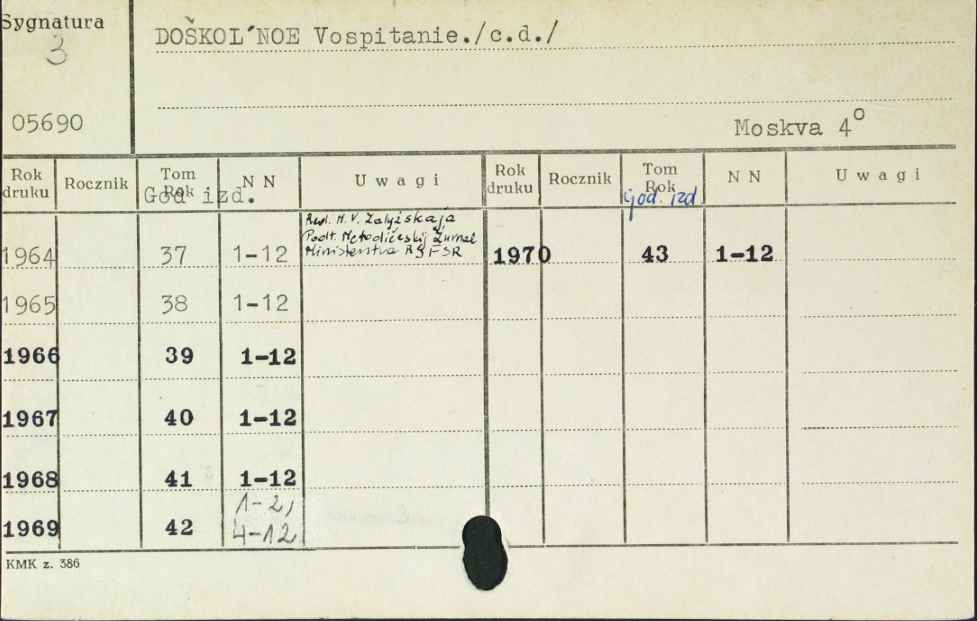 Sygnatura
3
05690
DOŠKOL'NOE Vospitanie./c.d./
Moskva 4°
Rok druku Rocznik Tom Rok N N Uwagi Rok druku Rocznik Tom Rok N N Uwagi
God izd. God. izd
Red. H. V.
Podt. Metodičeskij Žurnal
Ministerstva RSFSR
1964 37 1-12 1970 43 1-12
1965 38 1-12
1966 39 1-12
1967 40 1-12
1968 41 1-12
1969 42 1-2, 4-12
KMK z. 386